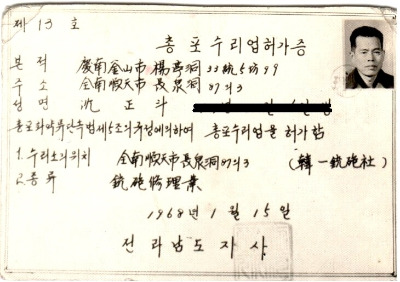 제 13 호
총포수리업허가증
본적 慶南釜山市楊亭洞33統5坊99
주소 全南順天市長泉洞37의3
성명 沈正斗
총포화약류단속법제5조의규정에의하여 총포수리업을 허가함
1. 수리소의위치 全南順天市長泉洞37의3 (韓一銃砲社)
2. 종류 銃砲修理業
1968年 1월 15일
전라남도지사